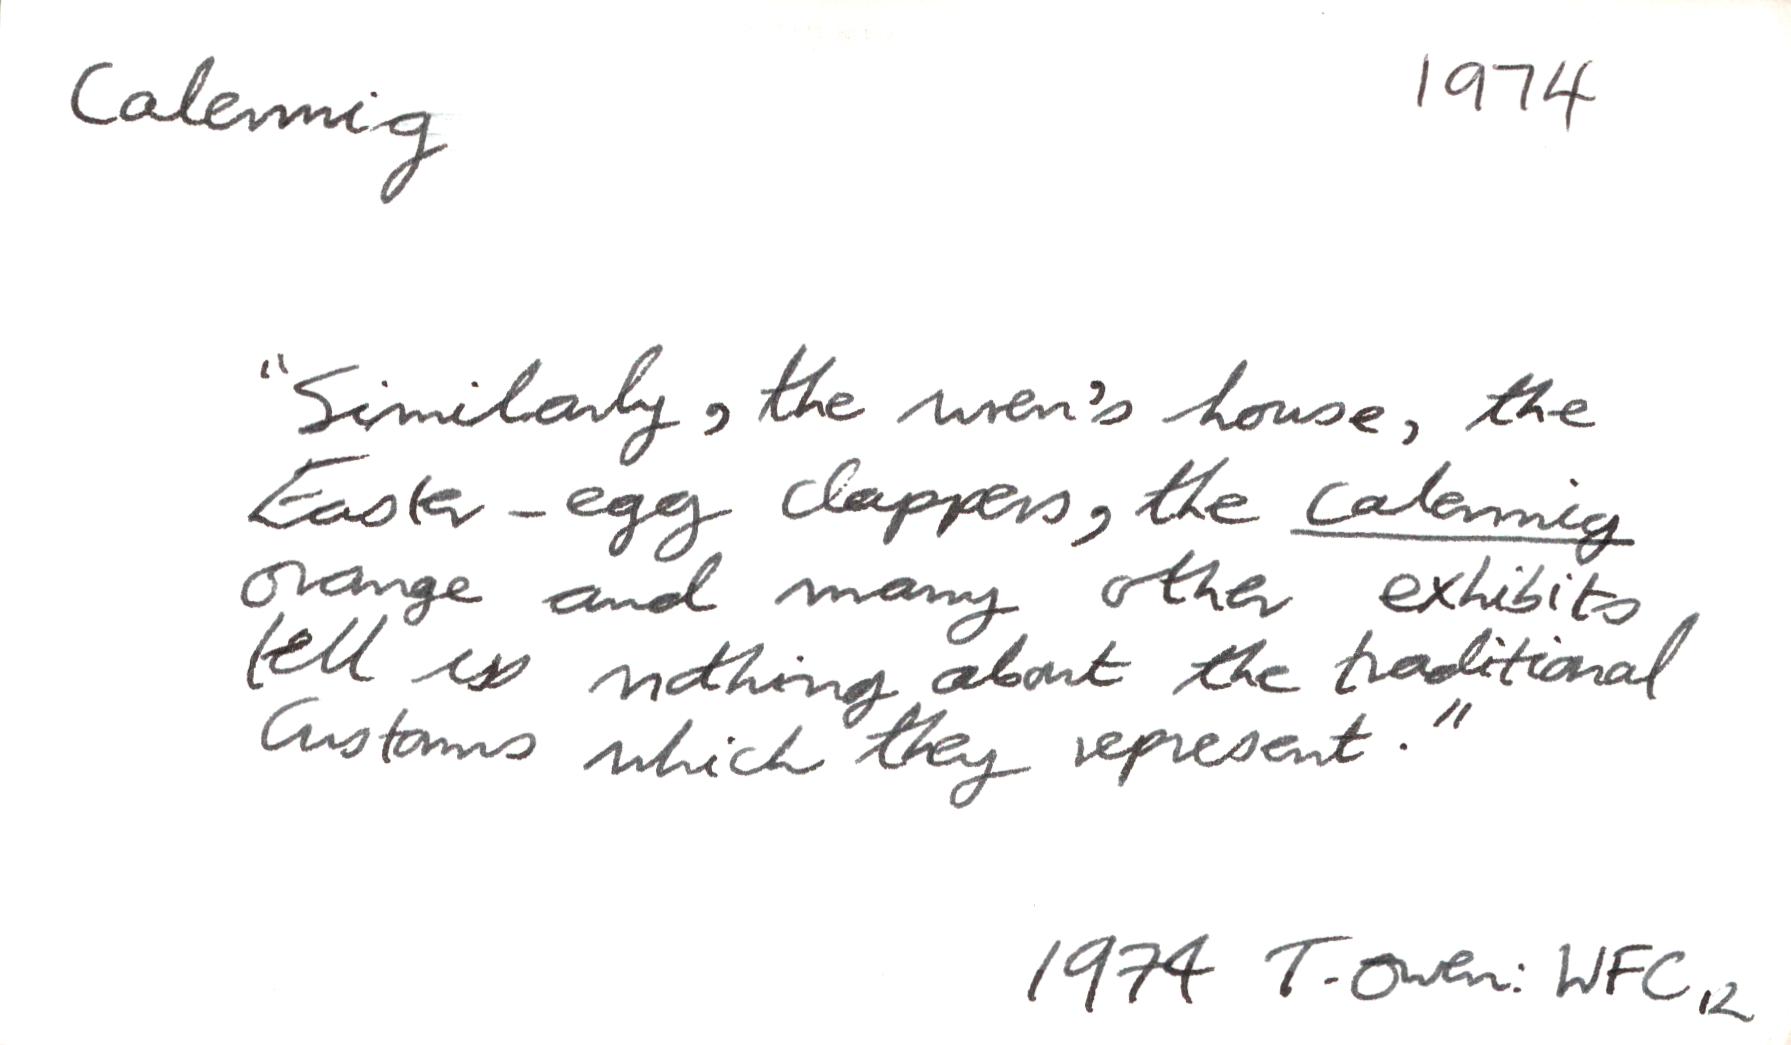 Calennig 1974
"Similarly, the wren's house, the
Easter-egg clappers, the calennig
orange and many other exhibits
tell us nothing about the traditional
Customs which they represent."
1974 T. Owen: WFC, 12